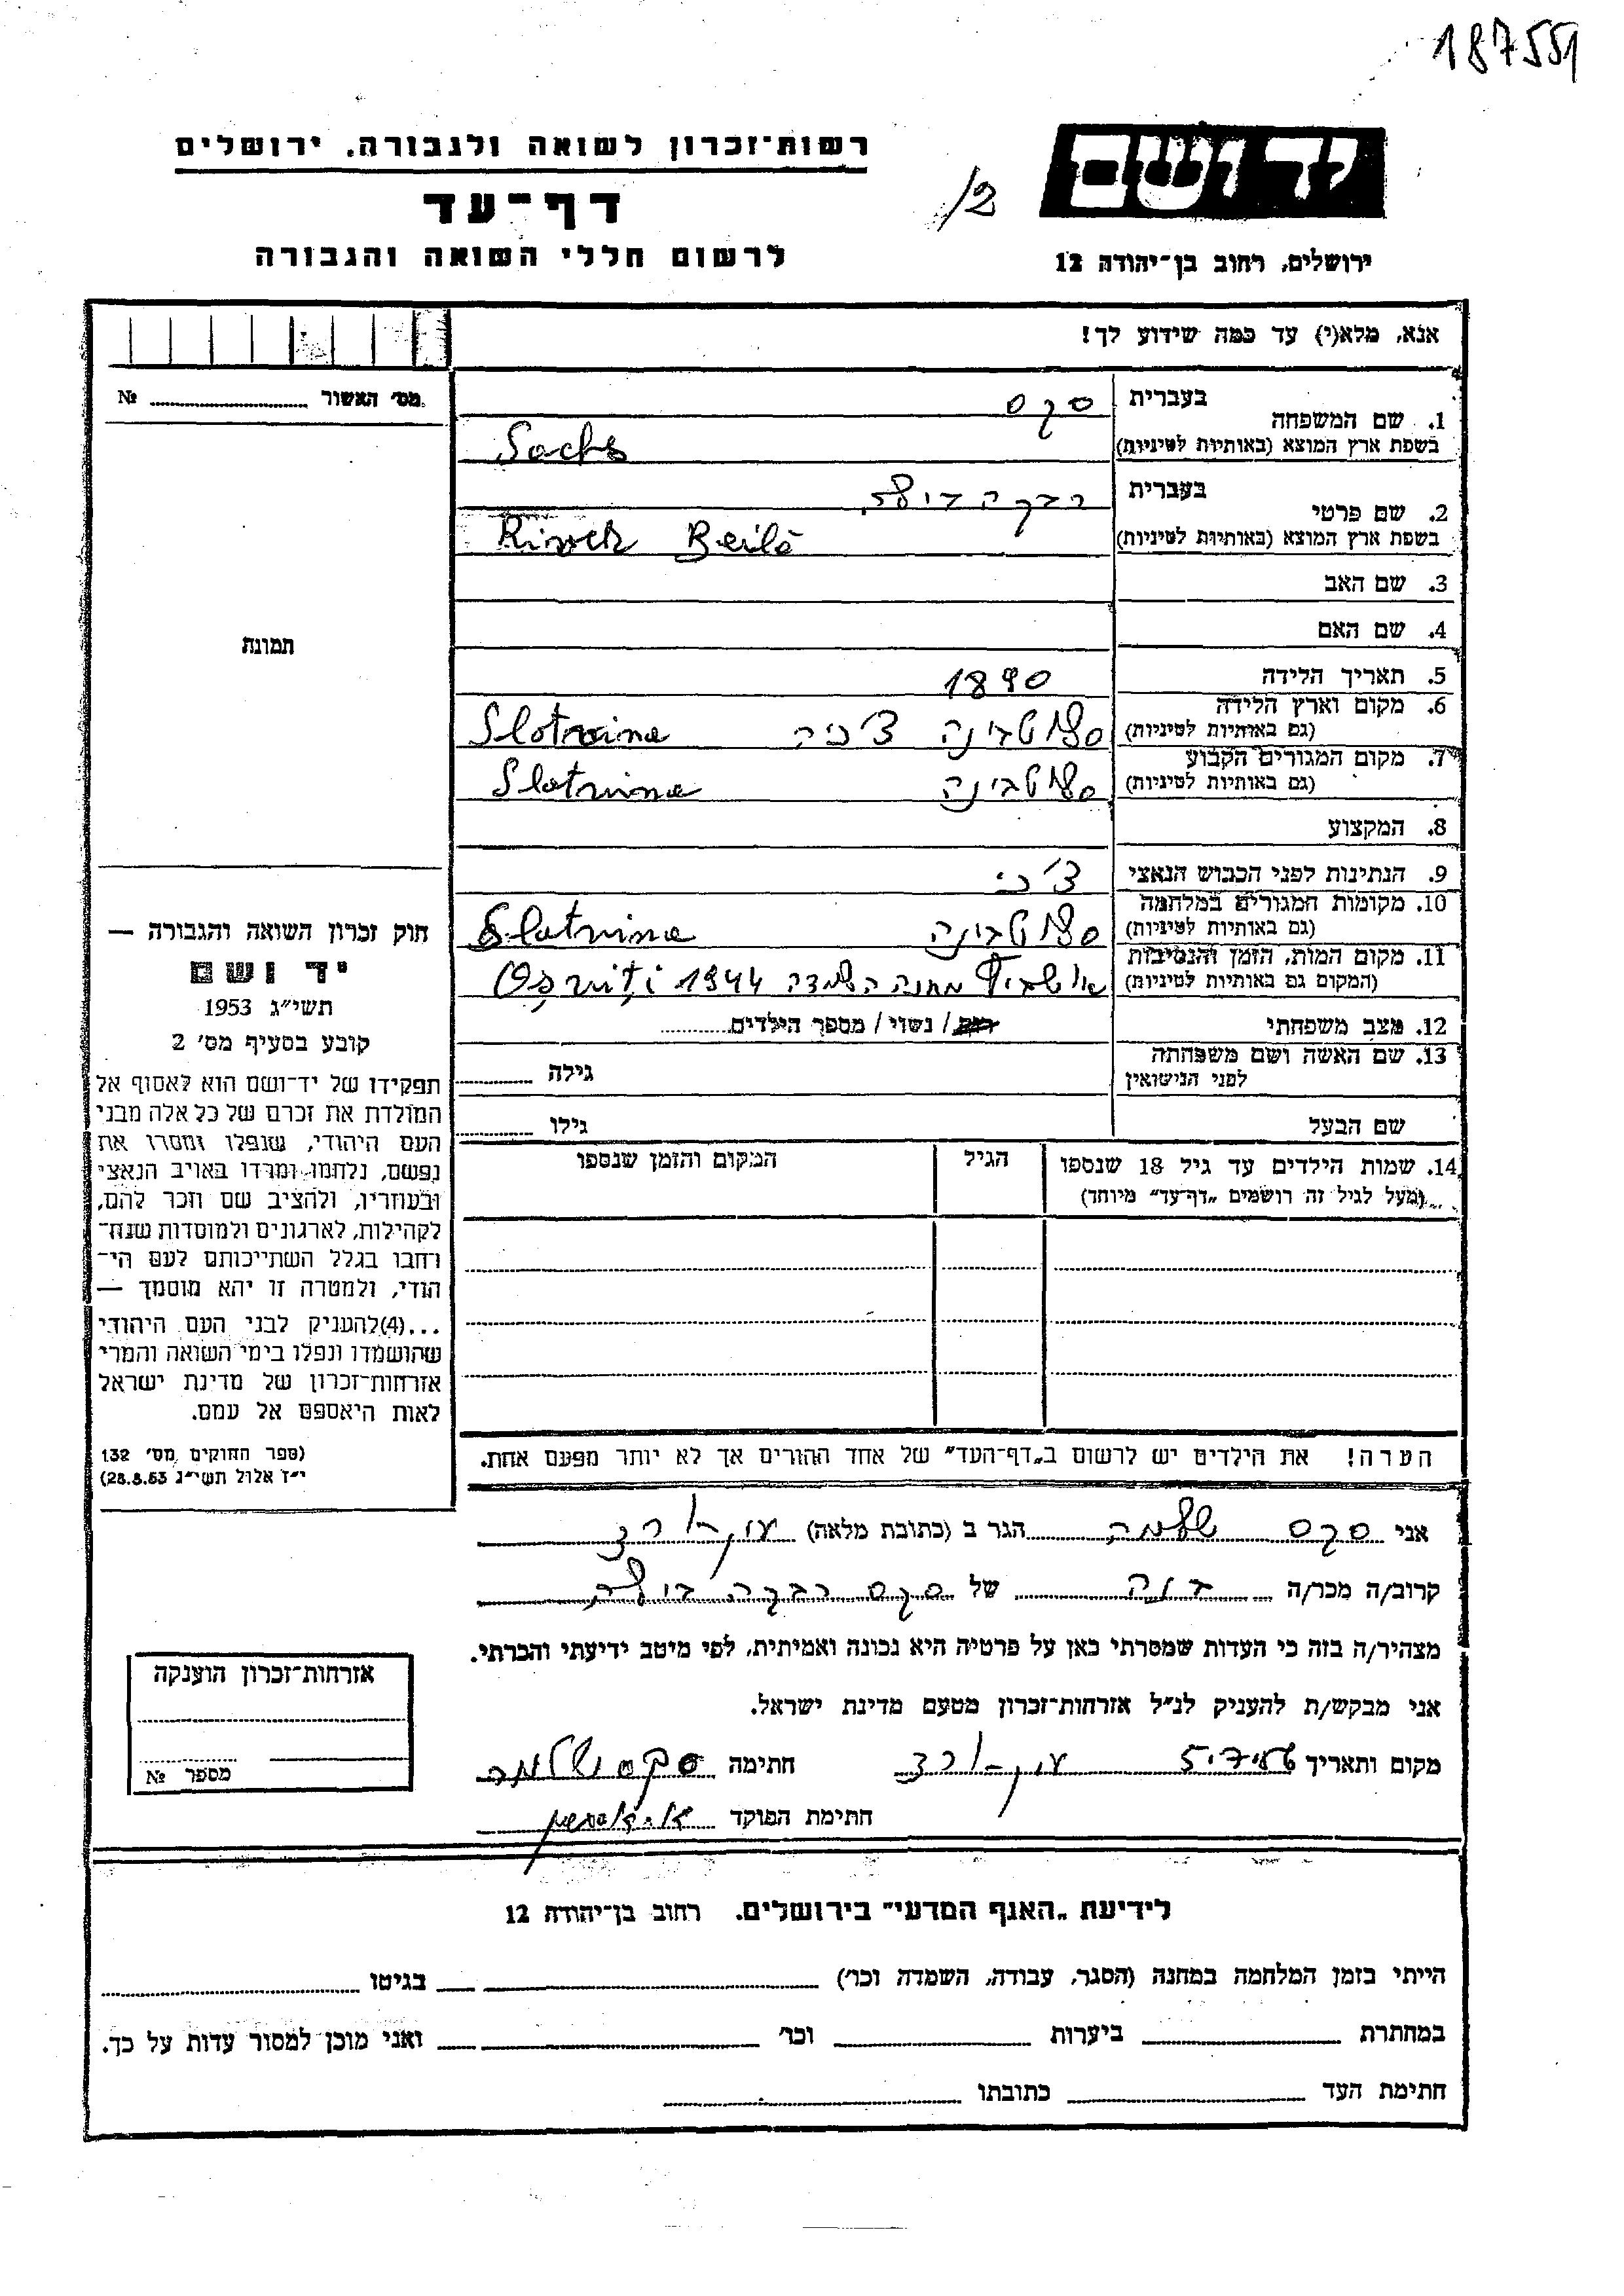 187551
רשות־זכרון לשואה ולגבורה, ירושלים
דף־עד
לרשום חללי השואה והגבורה
12/
יד ושם
ירושלים, רחוב בן־יהודה 12
אנא, מלא(י) עד כמה שידוע לך!
מס׳ האשור № 
1. שם המשפחה בעברית סקס
בשפת ארץ המוצא (באותיות לטיניות) Sachs
2. שם פרטי בעברית רבקה בילה
בשפת ארץ המוצא (באותיות לטיניות) Rivek Beilé
3. שם האב
4. שם האם
תמונת
5. תאריך הלידה 1890
6. מקום וארץ הלידה
(גם באותיות לטיניות) סלוטבינה צ׳כיה Slotvina
7. מקום המגורים הקבוע
(גם באותיות לטיניות) סלוטבינה Slotvina
8. המקצוע
9. הנתינות לפני הכבוש הנאצי צ׳כי
10. מקומות המגורים במלחמה
(גם באותיות לטיניות) סלוטבינה Slotvina
11. מקום המות, הזמן והנסיבות
(המקום גם באותיות לטיניות) אושביץ מחנה השמדה 1944 Osviti
12. מצב משפחתי רווק / נשוי / מספר הילדים
13. שם האשה ושם משפחתה
לפני הנישואין גילה
שם הבעל גילו
14. שמות הילדים עד גיל 18 שנספו הגיל המקום והזמן שנספו
(מעל לגיל זה רושמים „דף־עד״ מיוחד)
הערה! את הילדים יש לרשום ב„דף־העד״ של אחד ההורים אך לא יותר מפעם אחת.
חוק זכרון השואה והגבורה —
יד ושם
תשי״ג 1953
קובע בסעיף מס׳ 2
תפקידו של יד־ושם הוא לאסוף אל
המולדת את זכרם של כל אלה מבני
העם היהודי, שנפלו ומסרו את
נפשם, נלחמו ומרדו באויב הנאצי
ובעוזריו, ולהציב שם וזכר להם,
לקהילות, לארגונים ולמוסדות שנח־
רחבו בגלל השתייכותם לעם הי־
הודי, ולמטרה זו יהא מוסמך —
...(4)להעניק לבני העם היהודי
שהושמדו ונפלו בימי השואה והמרי
אזרחות־זכרון של מדינת ישראל
לאות היאספם אל עמם.
(ספר החוקים מס׳ 132
י״ז אלול תשי״ג 28.8.53)
אני סקס שלמה הגר ב (כתובת מלאה)
קרוב/ה מכר/ה של סקס רבקה בילה
מצהיר/ה בזה כי העדות שמסרתי כאן על פרטיה היא נכונה ואמיתית, לפי מיטב ידיעתי והכרתי.
אני מבקש/ת להעניק לנ״ל אזרחות־זכרון מטעם מדינת ישראל.
מקום ותאריך חתימה סקס שלמה
חתימת הפוקד
אזרחות־זכרון הוענקה
מספר №
לידיעת „האגף המדעי״ בירושלים. רחוב בן־יהודה 12
הייתי בזמן המלחמה במחנה (הסגר, עבודה, השמדה וכו׳) בגיטו
במחתרת ביערות וכו׳ ואני מוכן למסור עדות על כך.
חתימת העד כתובתו